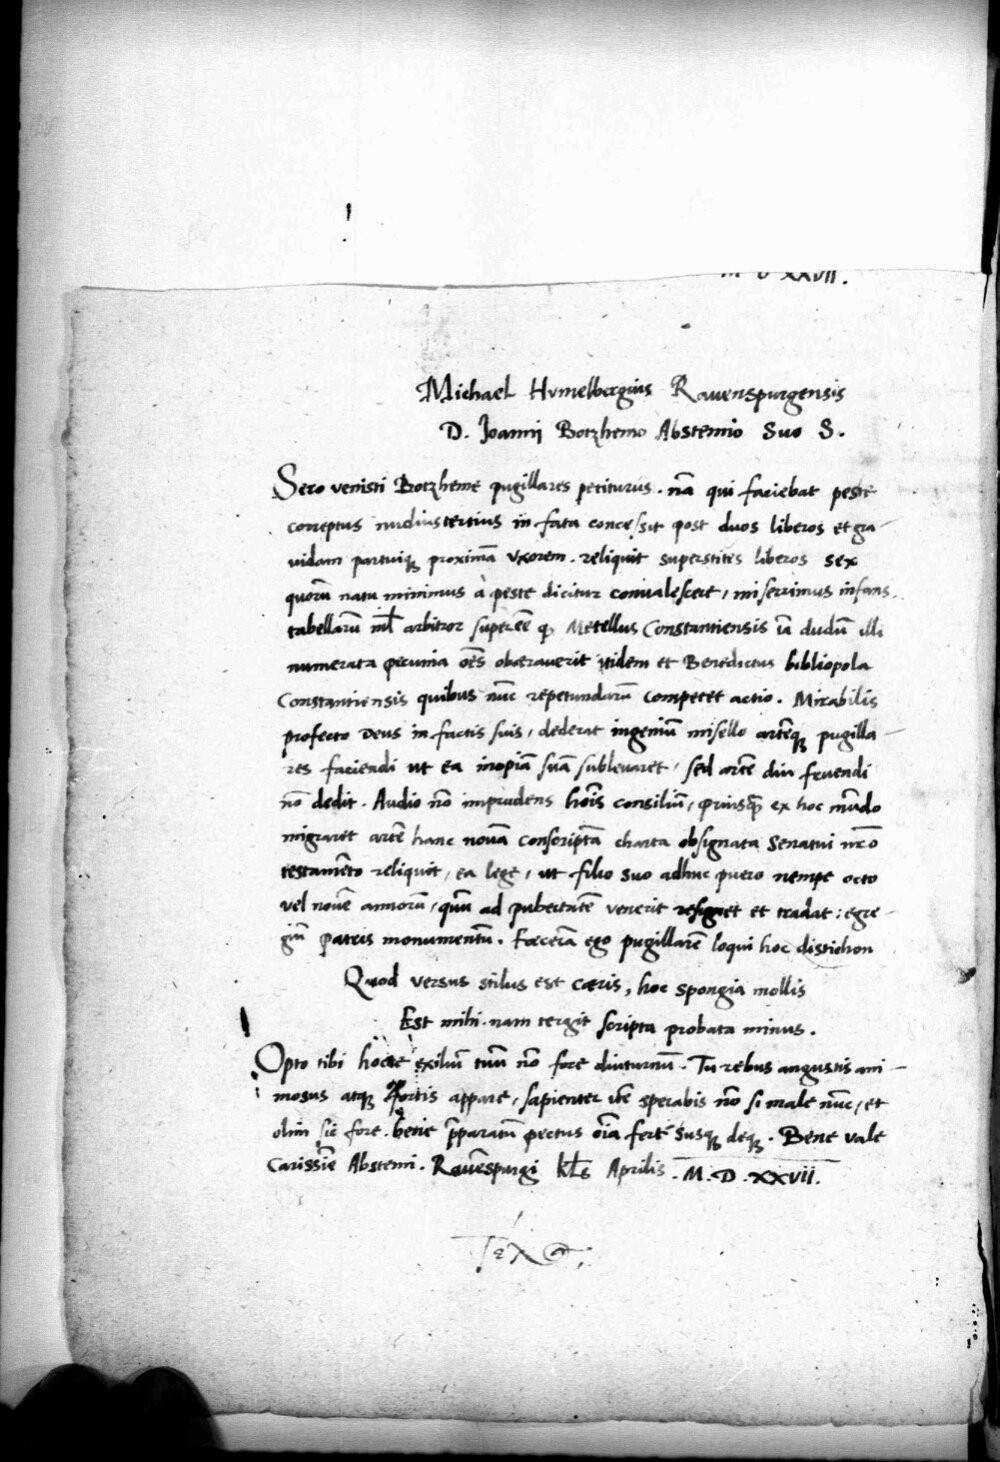 M D XXVII.
Michael Hvmelbergius Rauenspurgensis
D. Joanni Botzhemo Abstemio Suo S.
Sero venisti Botzheme pugillares petiturus. nā qui faciebat peste
correptus nudiustertius in fata concessit post duos liberos et gra-
uidam partuiq; proximā vxorem. reliquit superstites liberos sex
quorū natu minimus à peste dicitur conualescere, miserrimus infans.
tabellarū nil arbitror superēē q; Metellus Constantiensis iā dudū illi
numerata pecunia oēs obaerauerit itidem et Benedictus bibliopola
Constantiensis quibus nūc repetundarū competet actio. Mirabilis
profecto Deus in factis suis, dederat ingeniū misello artēq; pugilla-
res faciendi ut ea inopiā suā subleuaret, sed artē diu fruendi
nō dedit. Audio nō imprudens hoīs consiliū, priusq̄ ex hoc mūdo
migraret artē hanc nouā conscriptā charta obsignata Senatui nr̄o
testamēto reliquit, ea lege, ut filio suo adhuc puero nempe octo
vel nouē annorū, quū ad pubertatē venerit resignet et tradat: egre-
giū patris monumentū. Fecerā ego pugillarē loqui hoc distichon
Quod versus stilus est caeris, hoc spongia mollis
Est mihi. nam tergit scripta probata minus.
Opto tibi hocce exiliū tuū nō fore diuturnū. Tu rebus angustis ani-
mosus atq; fortis appare, sapienter itē sperabis nō si male nūc, et
olim sic fore. bene p̄paratū pectus oīa fert susq; deq;. Bene vale
Carissīe Abstemi. Rauēspurgi kl̄s Aprilis. M. D. XXVII.